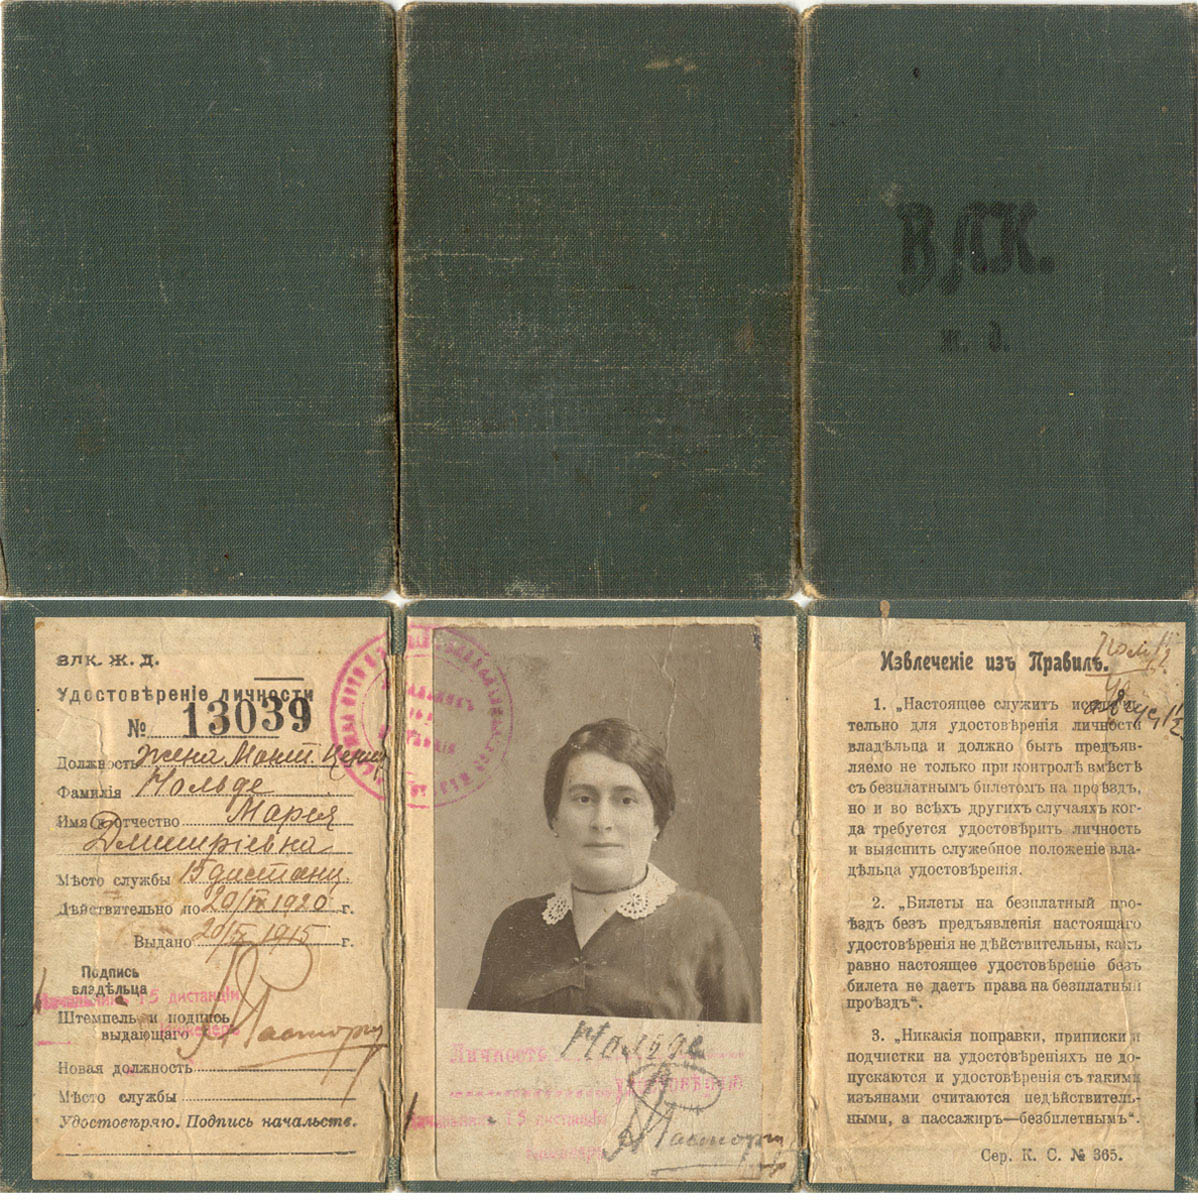 ВЛК.
ж. д.
ВЛК. Ж. Д.
Удостовѣреніе личности
№ 13039
Должность Жена Монт
Фамилія Нольде
Имя и отчество Марія
Дмитріевна
Мѣсто службы 15 дистанц
Дѣйствительно по 20/IX 1920 г.
Выдано 20/IX 1915 г.
Подпись
владѣльца
Начальникъ 15 дистанціи
Штемпель и подпись
выдающаго
Новая должность
Мѣсто службы
Удостовѣряю. Подпись начальств.
Личность Нольде
удостовѣряю
Начальникъ 15 дистанціи
Извлеченіе изъ Правилъ.
1. „Настоящее служитъ
тельно для удостовѣренія личности
владѣльца и должно быть предъяв-
ляемо не только при контролѣ вмѣстѣ
съ безплатнымъ билетомъ на проѣздъ,
но и во всѣхъ другихъ случаяхъ ког-
да требуется удостовѣрить личность
и выяснить служебное положеніе вла-
дѣльца удостовѣренія.
2. „Билеты на безплатный про-
ѣздъ безъ предъявленія настоящаго
удостовѣренія не дѣйствительны, какъ
равно настоящее удостовѣреніе безъ
билета не даетъ права на безплатный
проѣздъ“.
3. „Никакія поправки, приписки и
подчистки на удостовѣреніяхъ не до-
пускаются и удостовѣренія съ такими
изъянами считаются недѣйствитель-
ными, а пассажиръ—безбилетнымъ“.
Сер. К. С. № 365.